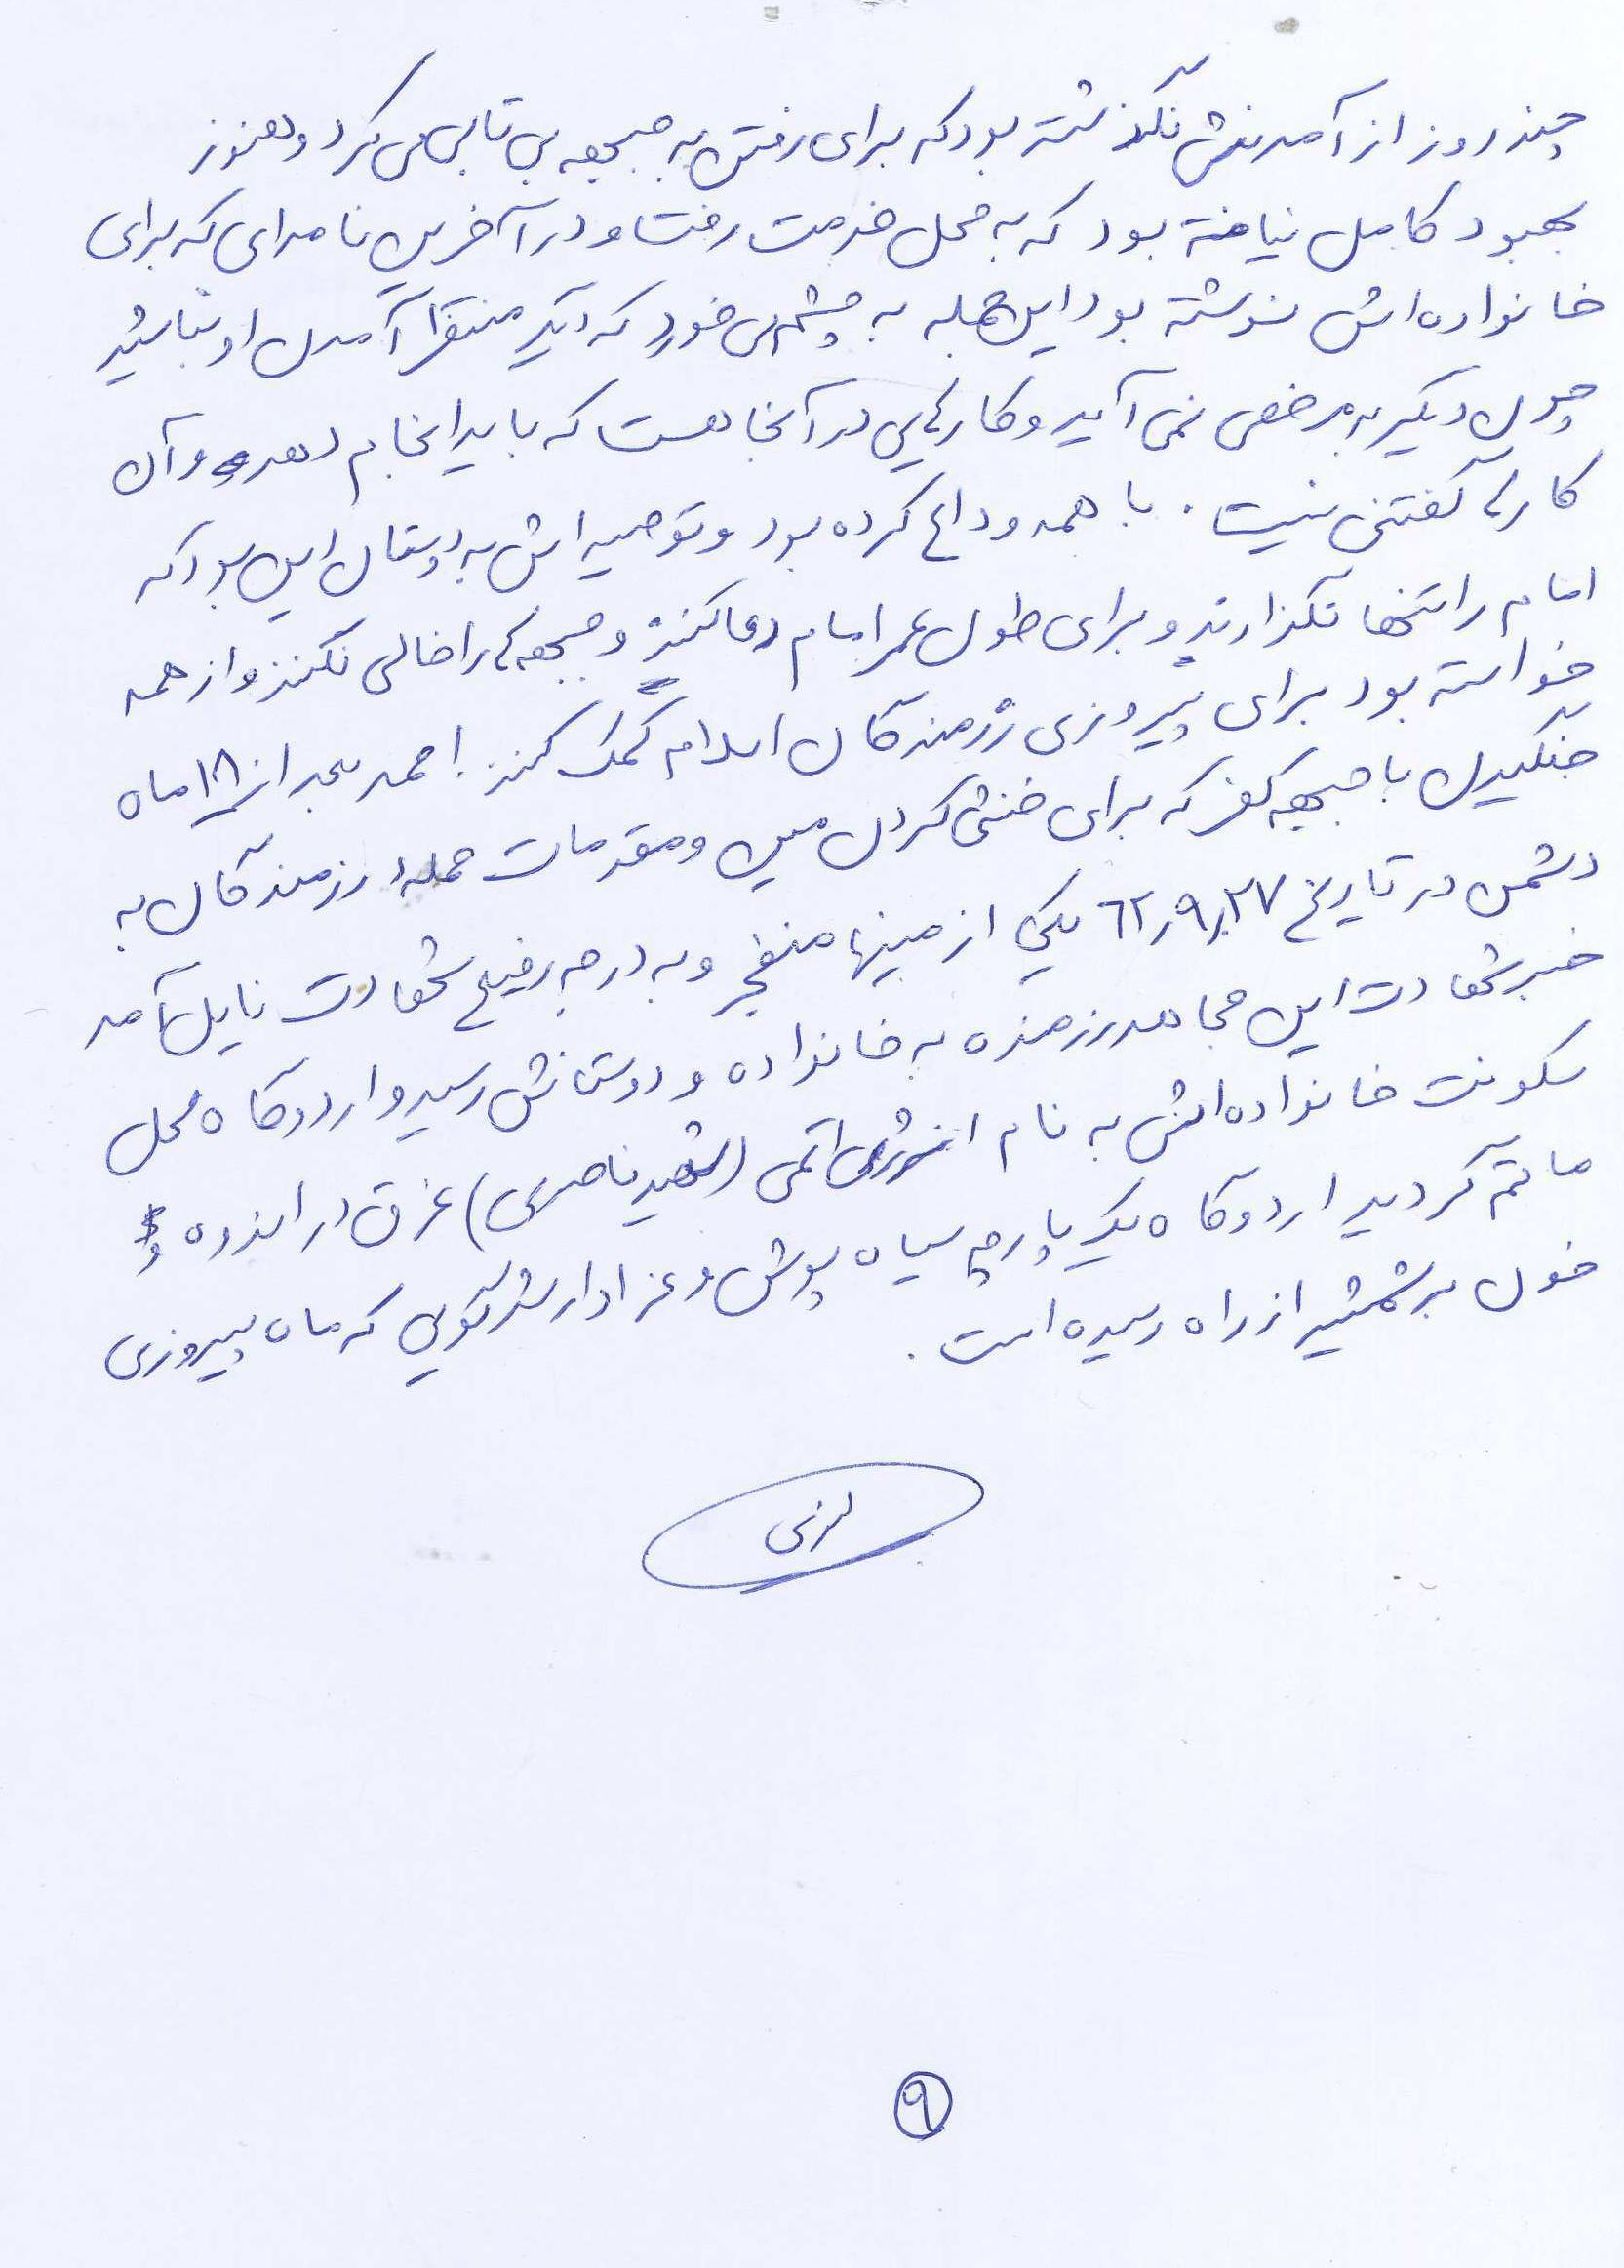 چند روز از آمدنش نگذشته بود که برای رفتن به جبهه بی تابی می کرد و هنوز
بهبود کامل نیافته بود که به محل خدمت رفت و در آخرین نامه ای که برای
خانواده اش نوشته بود این جمله به چشم می خورد که دیگر منتظر آمدن او نباشید
چون دیگر به مرخصی نمی آید و کارهایی در آنجا هست که باید انجام دهد و آن
کارها گفتنی نیست . با همه وداع کرده بود و توصیه اش به دوستان این بود که
امام را تنها نگذارند و برای طول عمر امام دعا کنند و جبهه ها را خالی نکنند و از همه
خواسته بود برای پیروزی رزمندگان اسلام کمک کنند . احمد بعد از ۱۸ ماه
جنگیدن با جبهه کفر که برای خنثی کردن مین و مقدمات حملهٔ رزمندگان به
دشمن در تاریخ ۶۲٫۹٫۲۷ یکی از مینها منفجر و به درجه رفیع شهادت نایل آمد
خبر شهادت این مجاهد رزمنده به خانواده و دوستانش رسید و اردوگاه محل
سکونت خانواده اش به نام انرژی اتمی (شهید ناصری) غرق در اندوه و
ماتم گردید اردوگاه یک پارچه سیاه پوش و عزادار شد گویی که ماه پیروزی
خون بر شمشیر از راه رسیده است .
۹